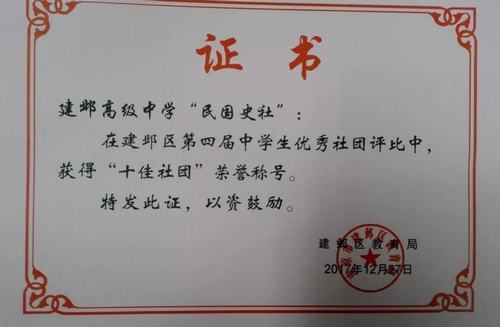 证书
建邺高级中学“民国史社”：
在建邺区第四届中学生优秀社团评比中，
获得“十佳社团”荣誉称号。
特发此证，以资鼓励。
建邺区教育局
2017年12月27日
南京市建邺区教育局